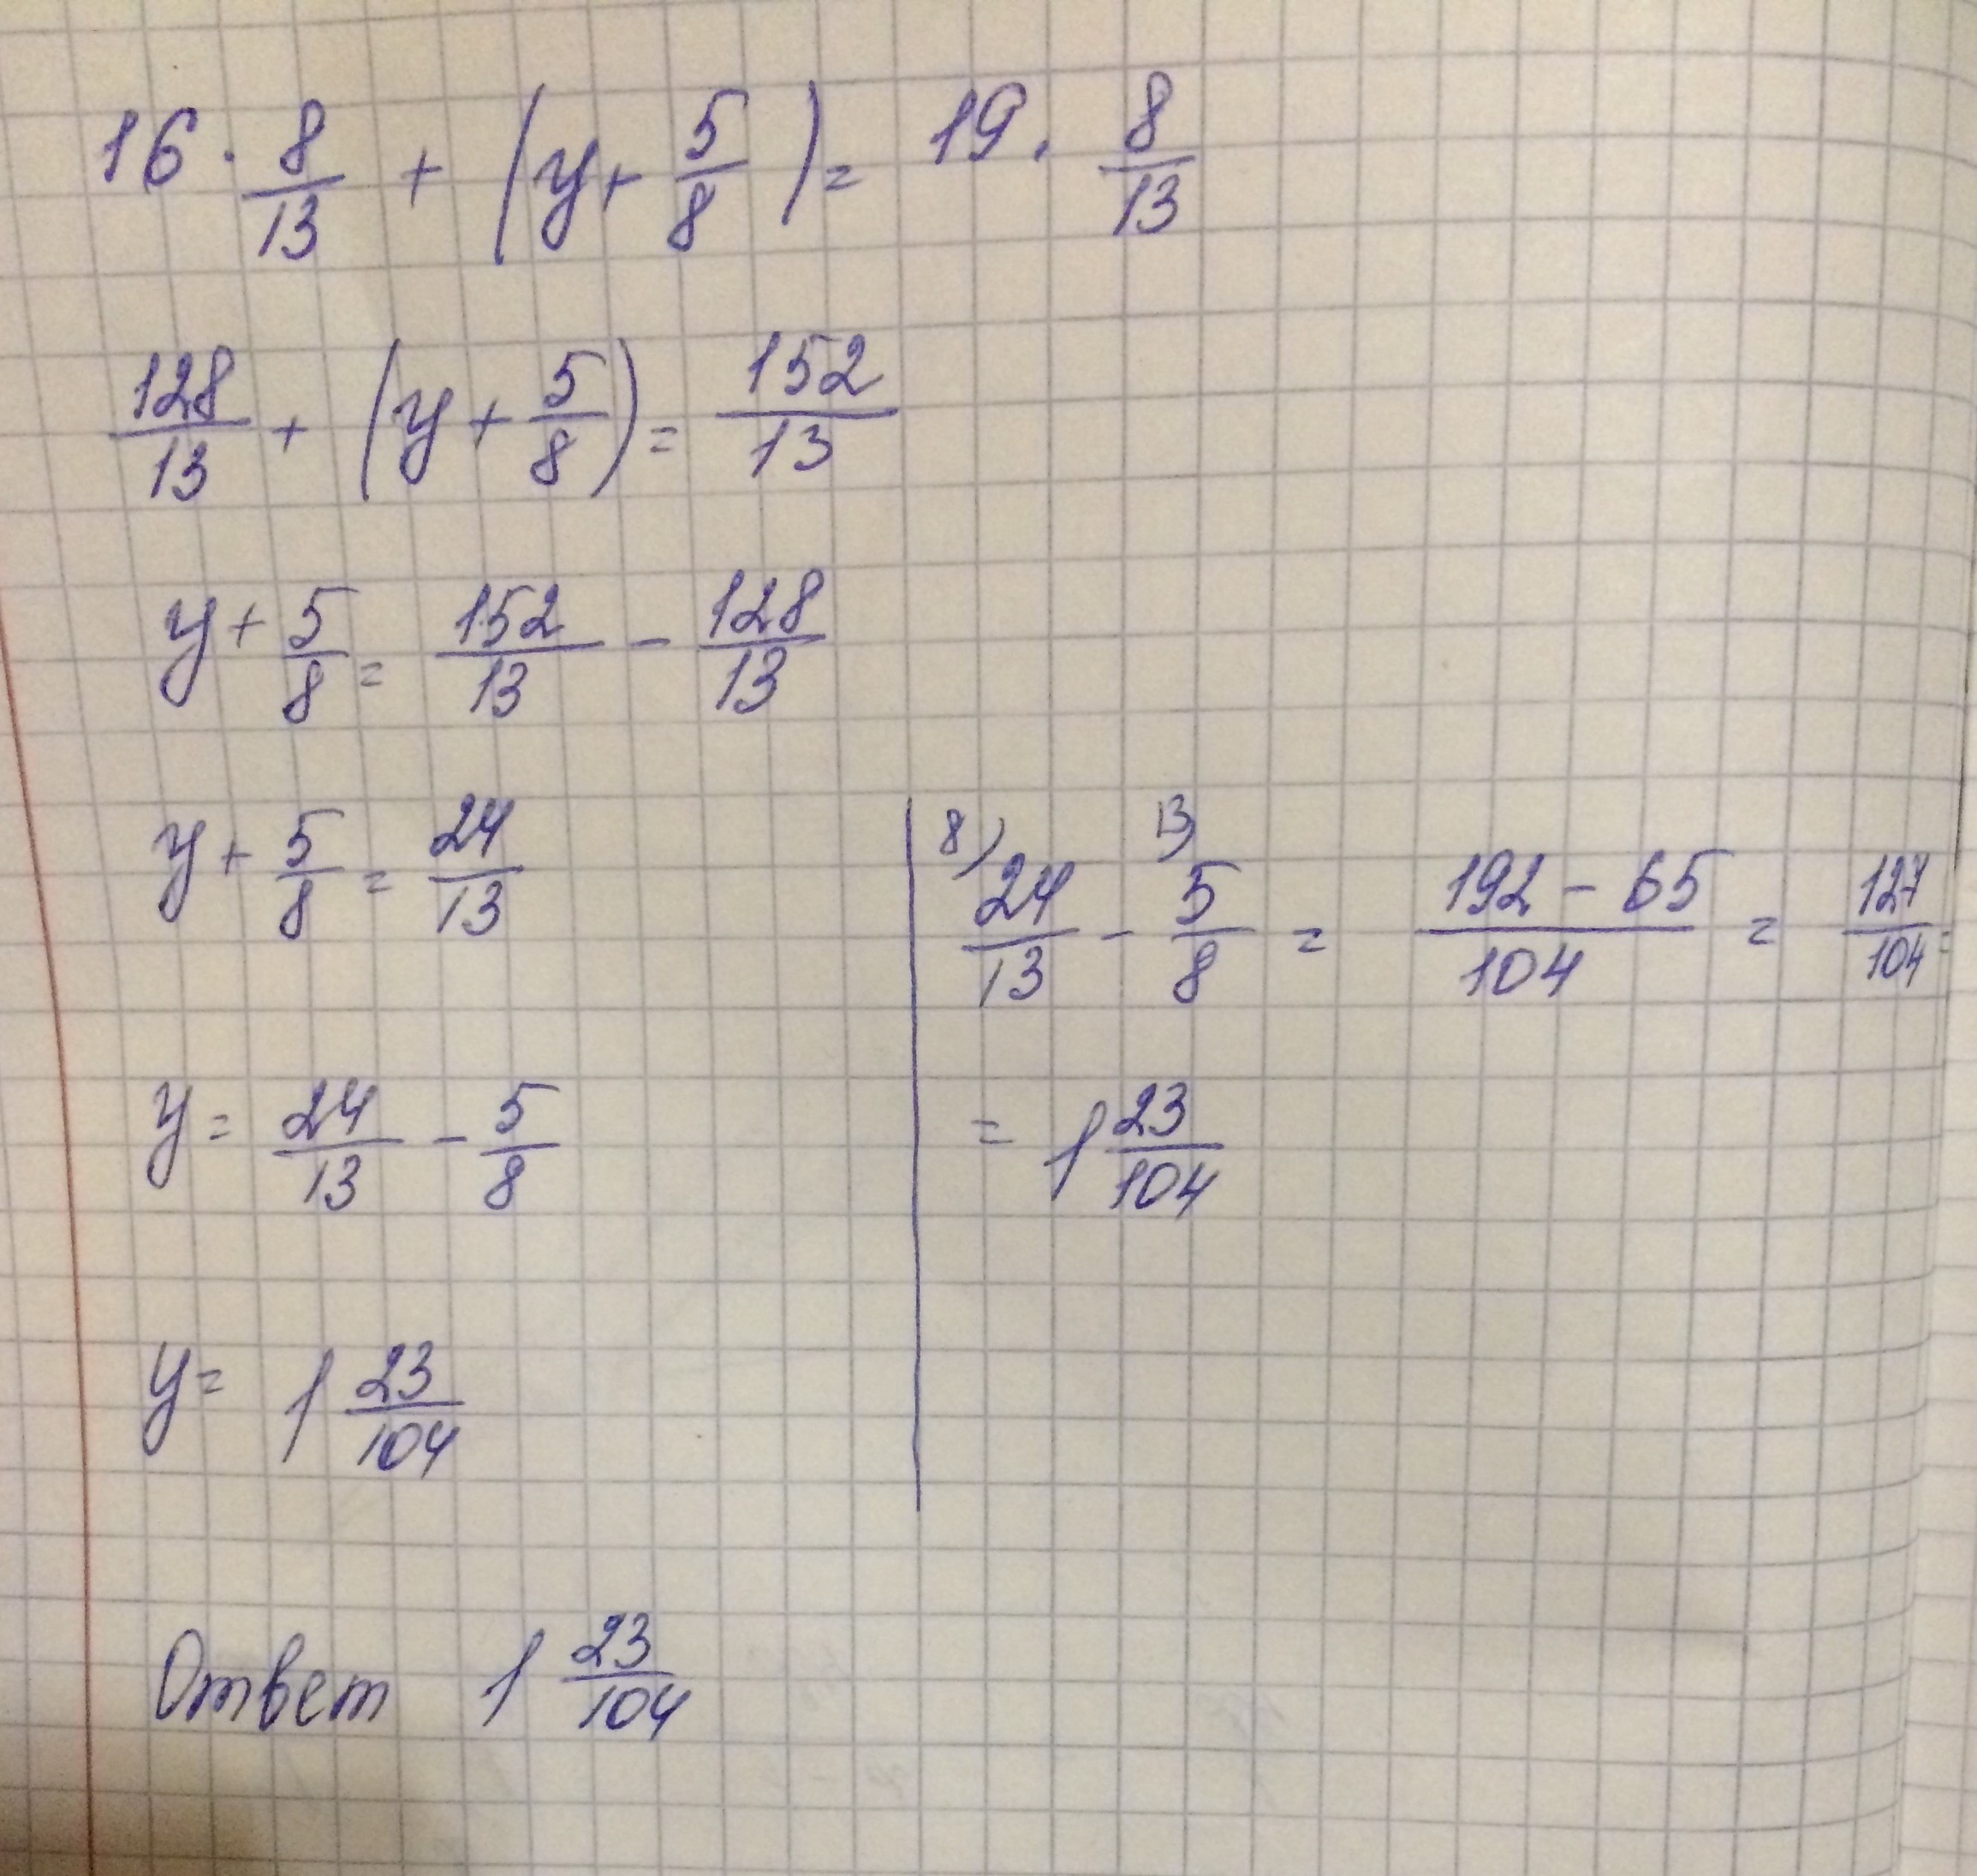 16 · 8/13 + (y + 5/8) = 19 · 8/13
128/13 + (y + 5/8) = 152/13
y + 5/8 = 152/13 - 128/13
y + 5/8 = 24/13
y = 24/13 - 5/8
y = 1 23/104
8) 13)
24/13 - 5/8 = (192 - 65)/104 = 127/104 =
= 1 23/104
Ответ 1 23/104